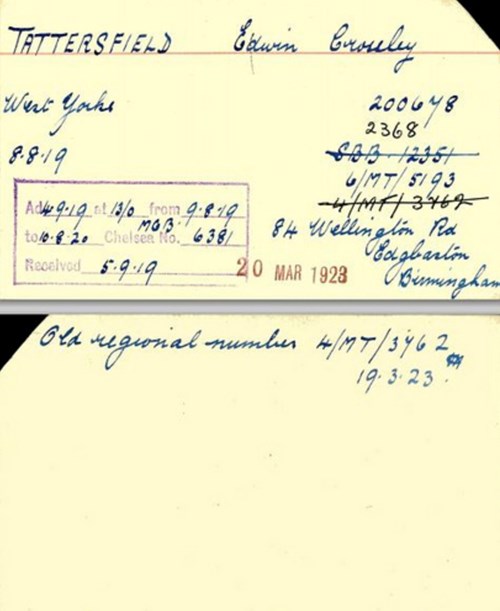 TATTERSFIELD Edwin Crossley
West Yorks 200678
2368
8.8.19 SBB 12351
6/MT/5193
4/MT/3762
Ad 4.9.19 at 13/0 from 9.8.19
MGB
to 10.8.20 Chelsea No. 6381
Received 5.9.19
84 Wellington Rd
Edgbaston
Birmingham
20 MAR 1923
Old regional number 4/MT/3762
19.3.23.